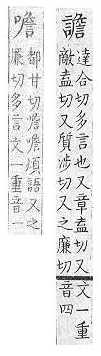 譫
達合切多言也又章盍切又文一重
敵盍切又質涉切又之廉切音四
噡
都甘切噡噡煩語又之
廉切多言文一重音一